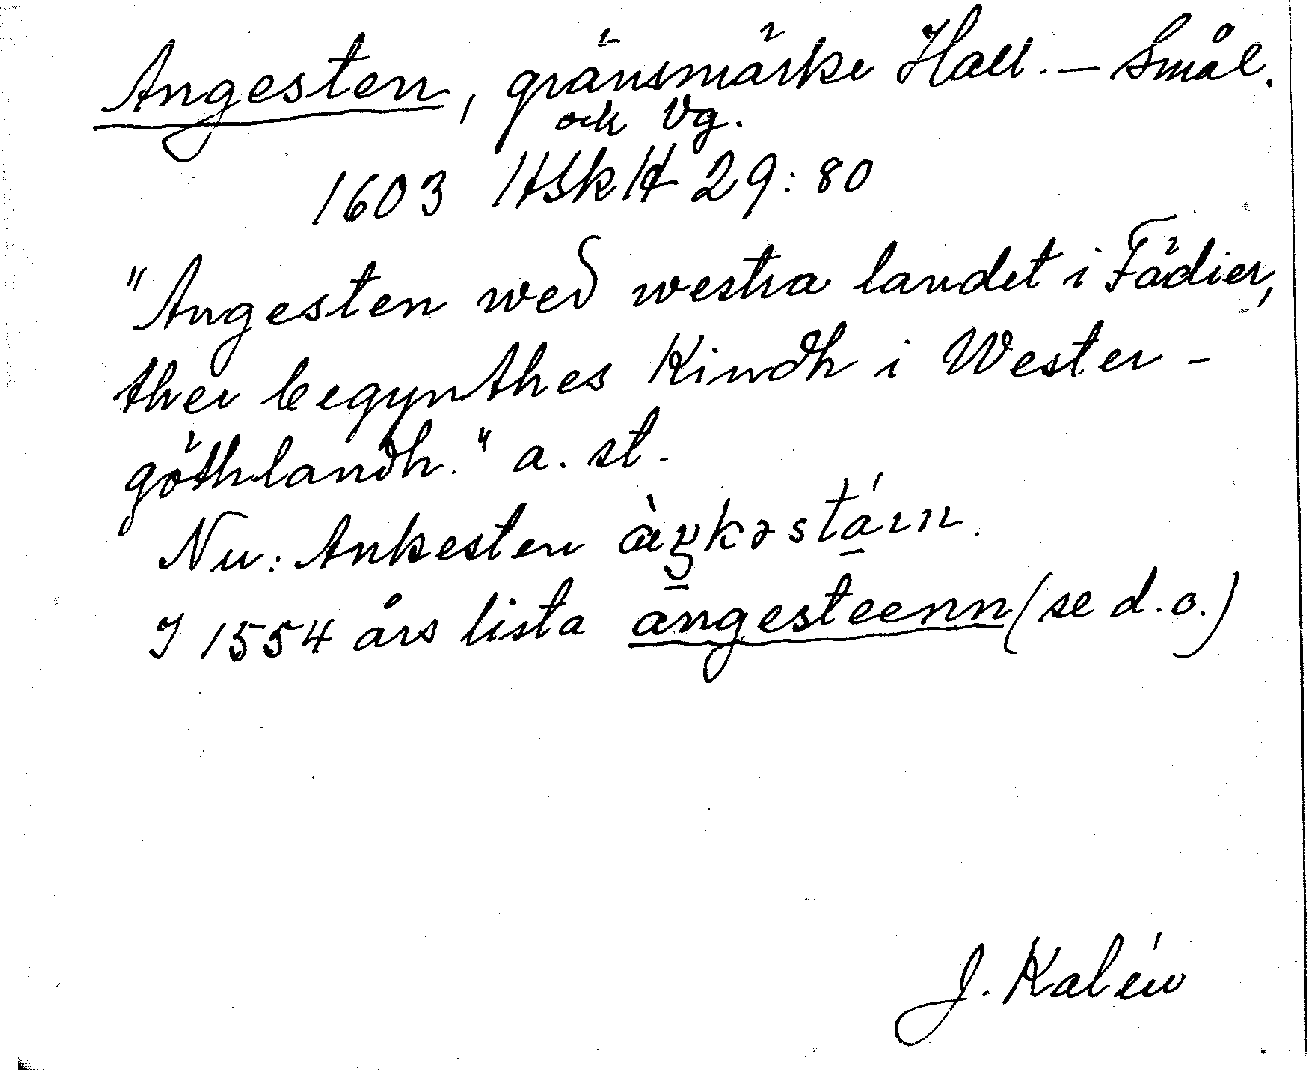 Angesten, gränsmärke Hall. – Smål.
och Vg.
1603 HSkH 29:80
"Angesten wed westra landet i Fädier,
ther begynthes Kindh i Wester-
göthlandh." a. st.
Nu: Ankesten
I 1554 års lista angesteenn (se d.o.)
J. Kalén